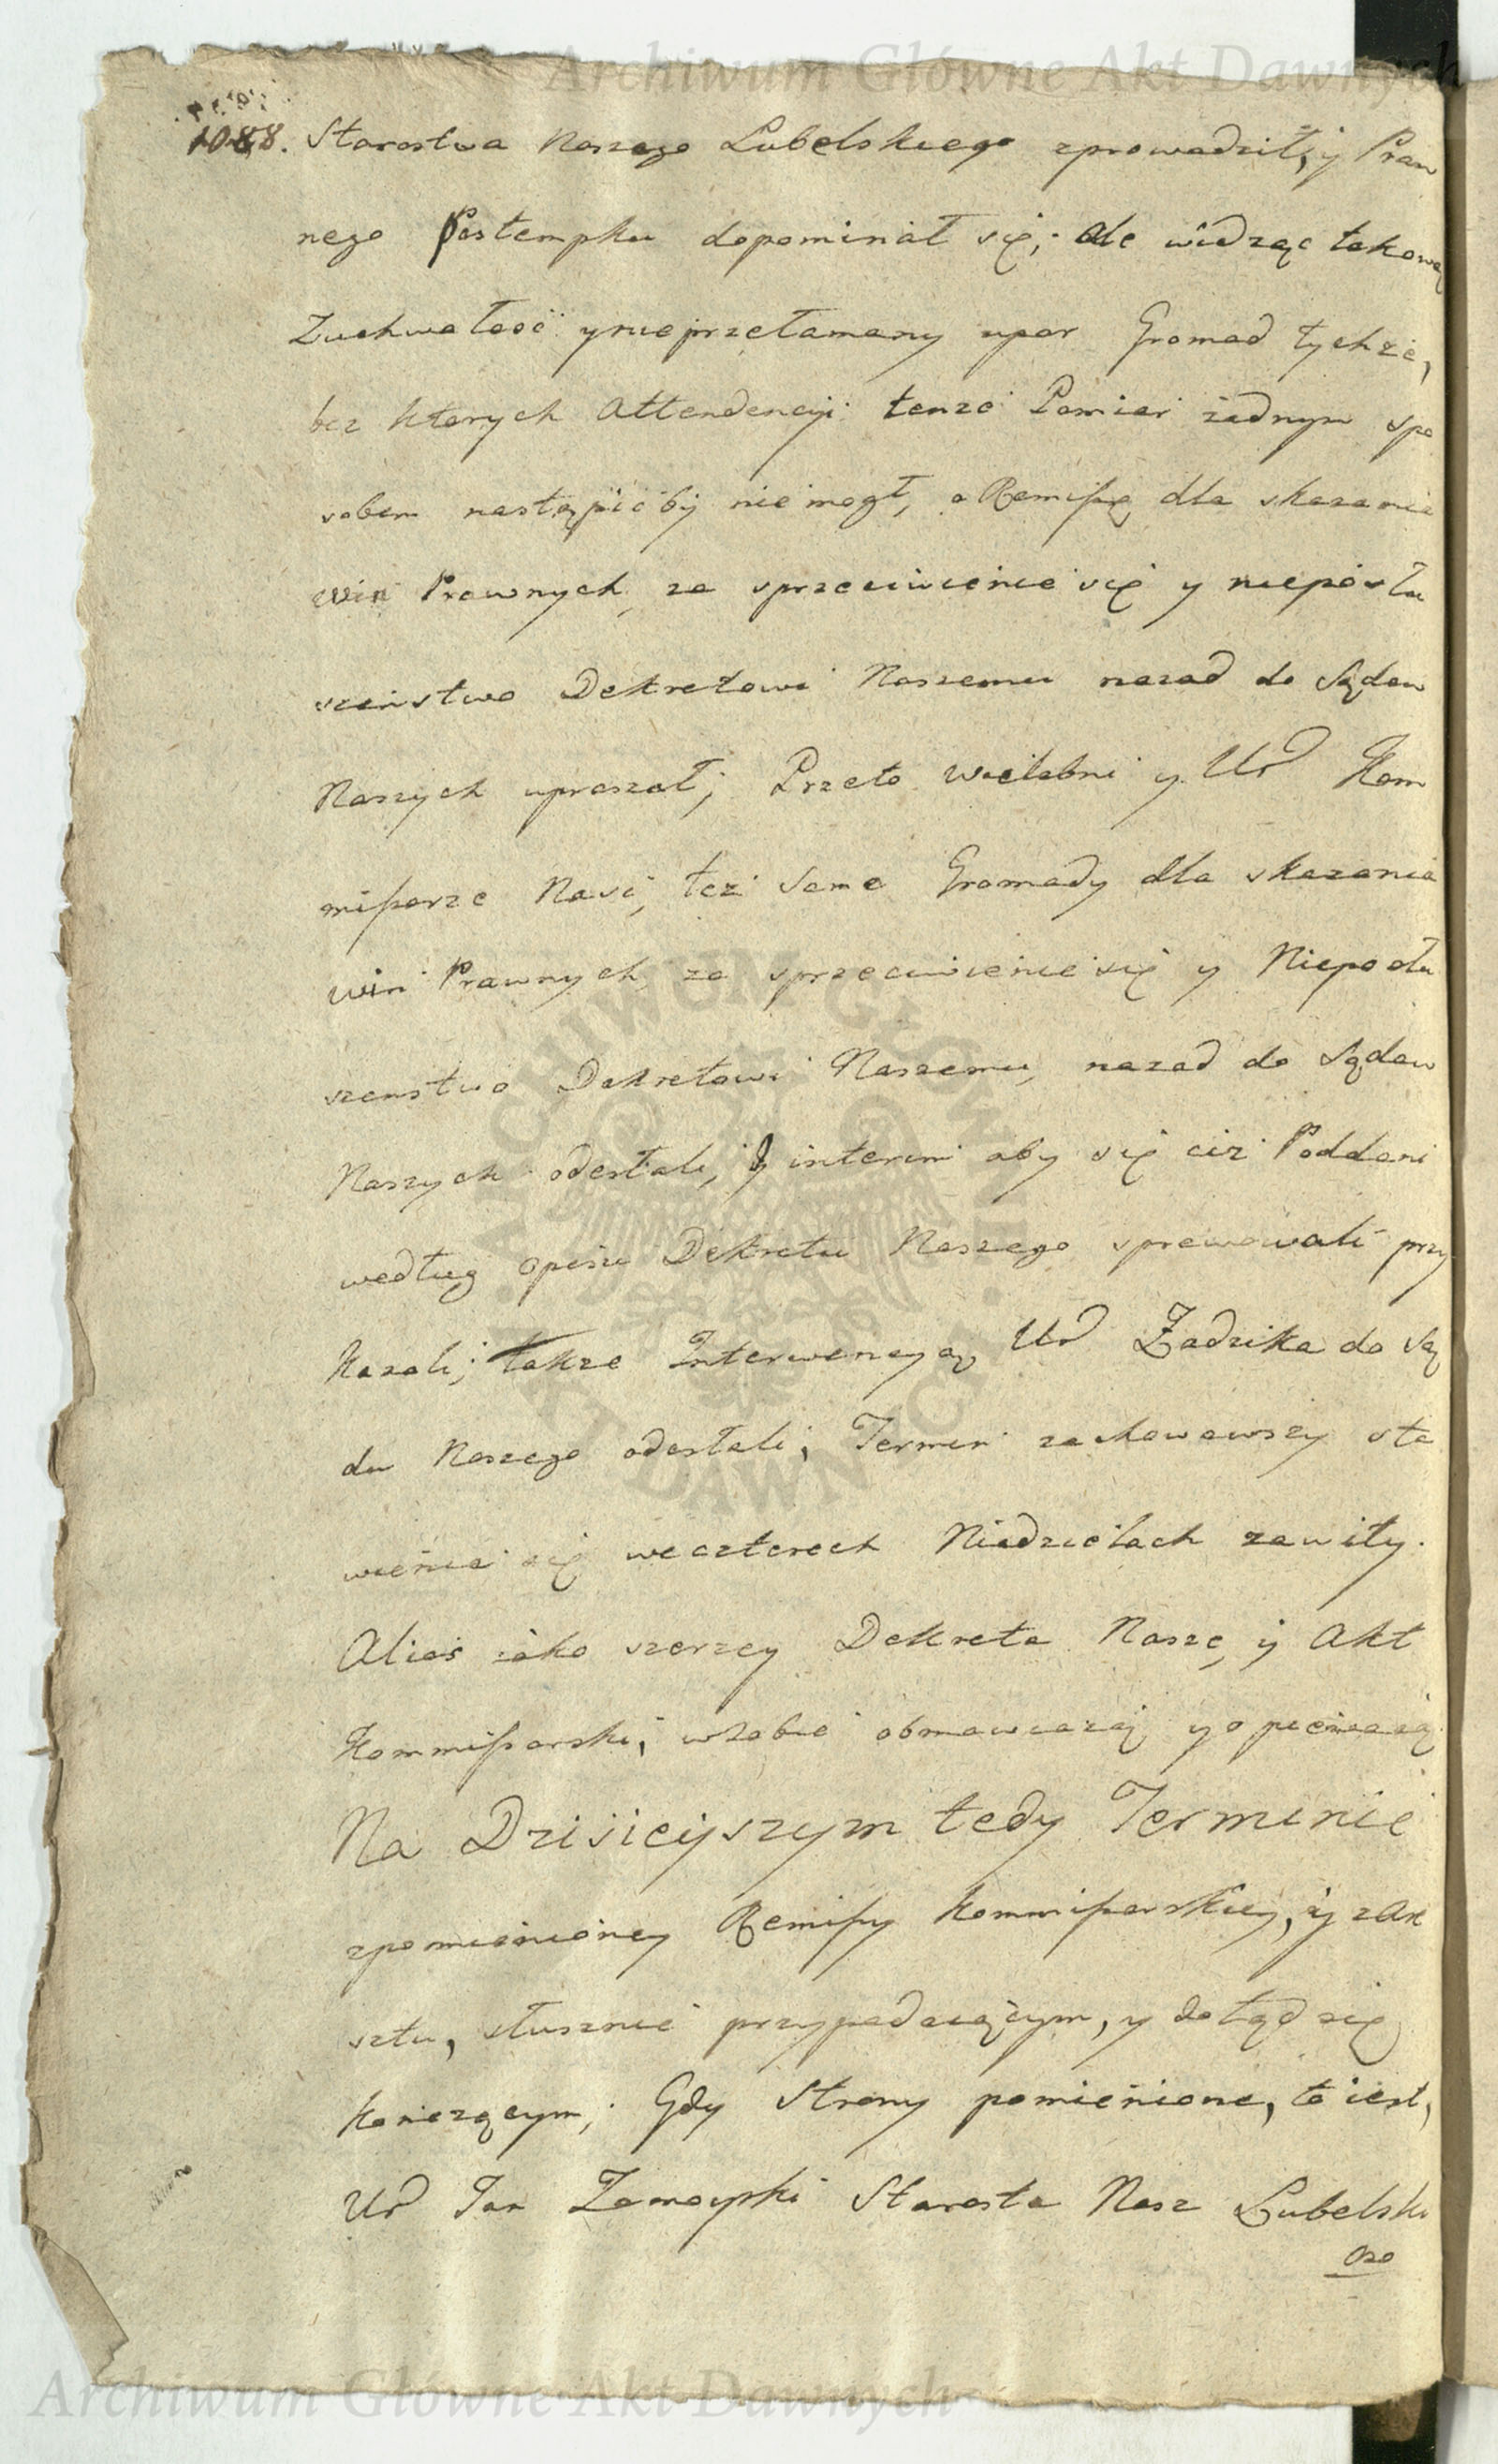 Archiwum Główne Akt Dawnych
1088. Starostwa Naszego Lubelskiego zprowadził, y Praw
nego Postempku dopominał się; Ale widząc takową
Zuchwałość y nieprzełamany upor Gromad tychże,
bez ktorych Attendencyi tenże Pomiar żadnym spo
sobem nastąpić by nie mogł, o Remissę dla skazania
win Prawnych za sprzeciwienie się y nieposłu
szeństwo Dekretowi Naszemu nazad do Sądow
Naszych upraszał; Przeto Wielebni y Ur Kom
missarze Nasi, też same Gromady dla skazania
win Prawnych za sprzeciwienie się y Nieposłu
szenstwo Dekretowi Naszemu, nazad do Sądow
Naszych odesłali, y interim aby się ciż Poddani
według opisu Dekretu Naszego sprawowali przy
kazali; także Interwencyą Ur Żadzika do Są
du Naszego odesłali, Termin zachowawszy sta
wienia się we czterech Niedzielach zawity.
Alias iako szerzey Dekreta Nasze, y Akt
Kommissarski, w sobie obmawiaią y opiewaią
Na Dzisieyszym tedy Terminie
zpomienioney Remissy Kommissarskiey, y z Are
sztu, słusznie przypadaiącym, y dotąd się
kończącym; Gdy Strony pomienione, to iest,
Ur Jan Zamoyski Starosta Nasz Lubelski
ARCHIWUM GŁÓWNE AKT DAWNYCH
Archiwum Główne Akt Dawnych